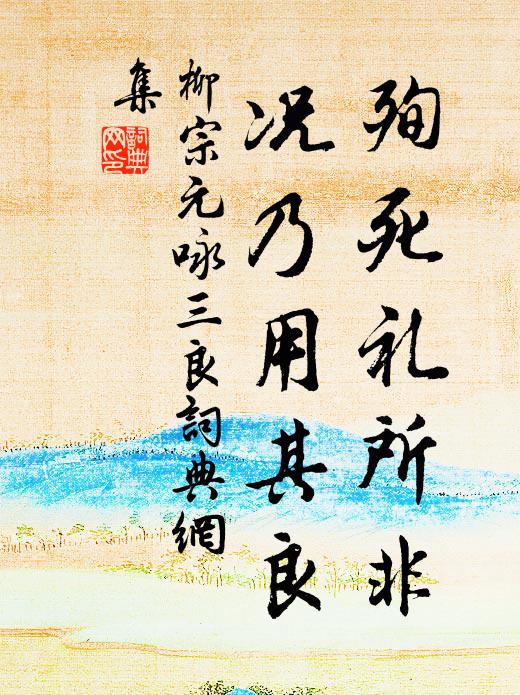 殉死礼所非
况乃用其良
柳宗元咏三良詞典網
集
詞典
网印